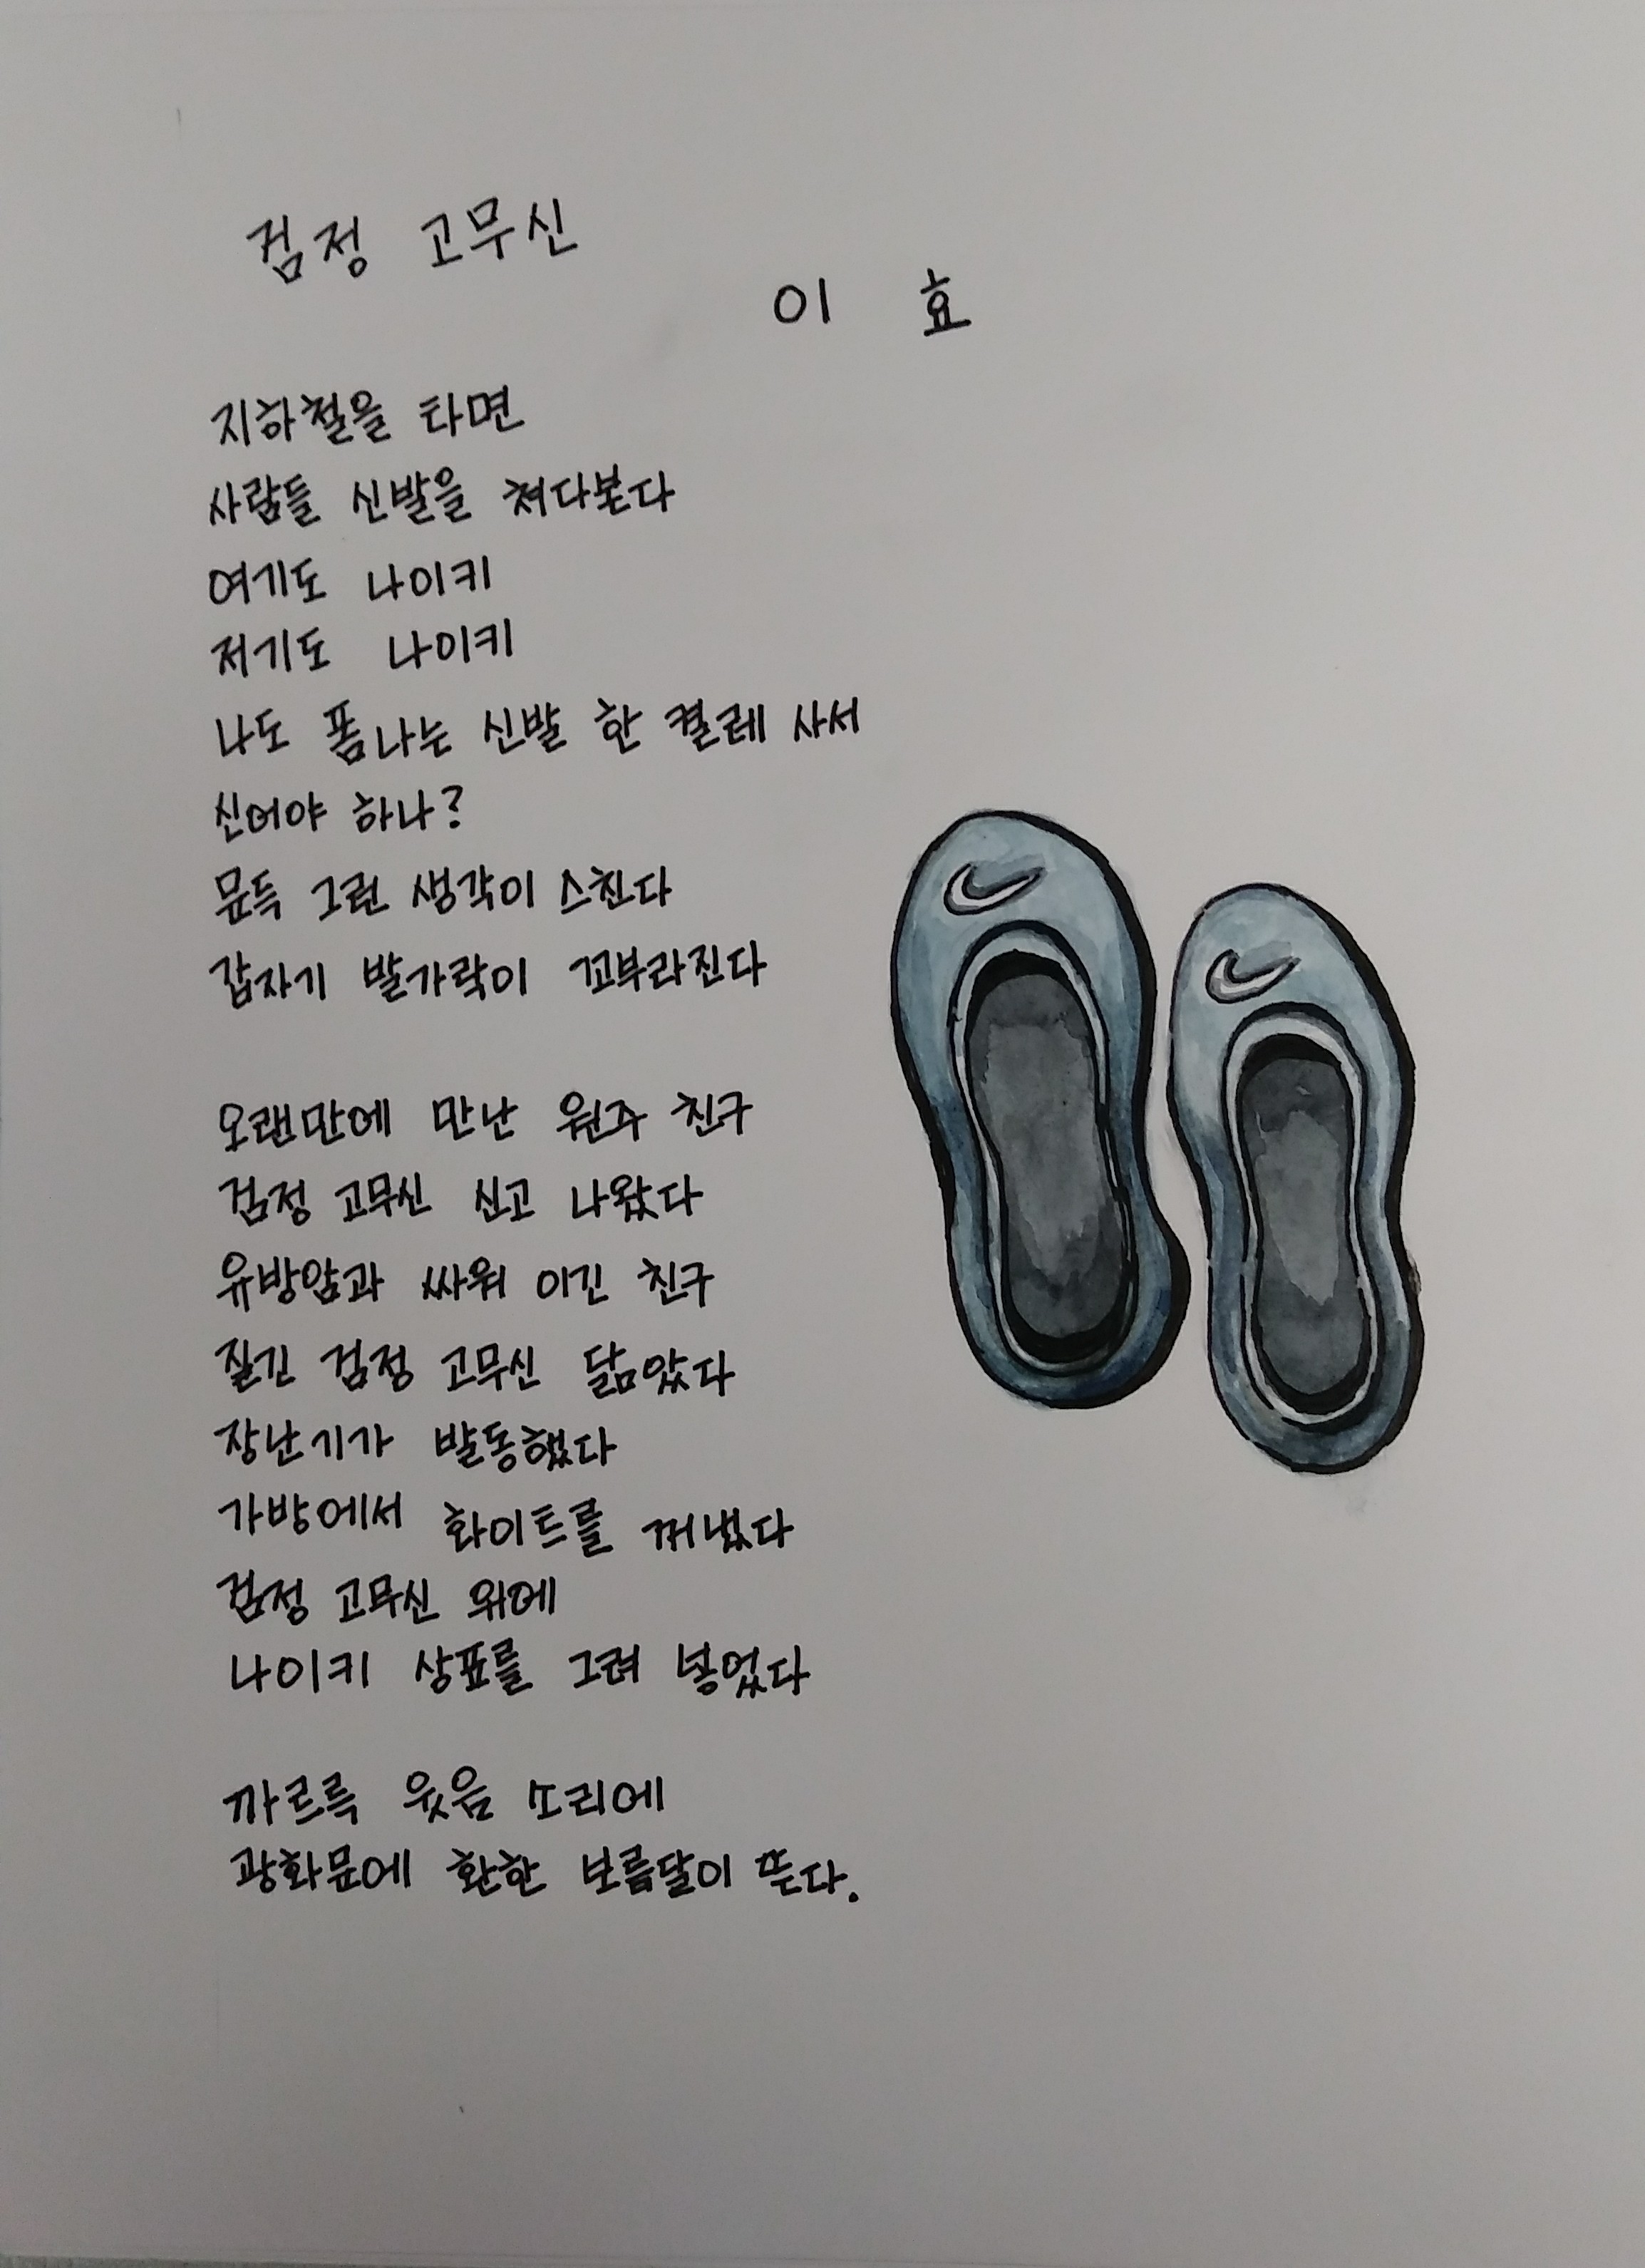 검정 고무신
이 효
지하철을 타면
사람들 신발을 쳐다본다
여기도 나이키
저기도 나이키
나도 폼나는 신발 한 켤레 사서
신어야 하나?
문득 그런 생각이 스친다
갑자기 발가락이 꼬부라진다
오랜만에 만난 원주 친구
검정 고무신 신고 나왔다
유방암과 싸워 이긴 친구
질긴 검정 고무신 닮았다
장난기가 발동했다
가방에서 화이트를 꺼냈다
검정 고무신 위에
나이키 상표를 그려 넣었다
까르륵 웃음 소리에
광화문에 환한 보름달이 뜬다.